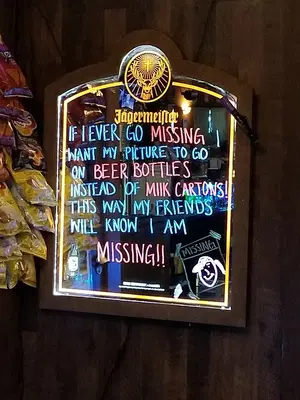 Jägermeister
IF I EVER GO MISSING I
WANT MY PICTURE TO GO
ON BEER BOTTLES
INSTEAD OF MIlK CARTONS!
THIS WAY MY FRIENDS
WILL KNOW I AM
MISSING!!
MISSING